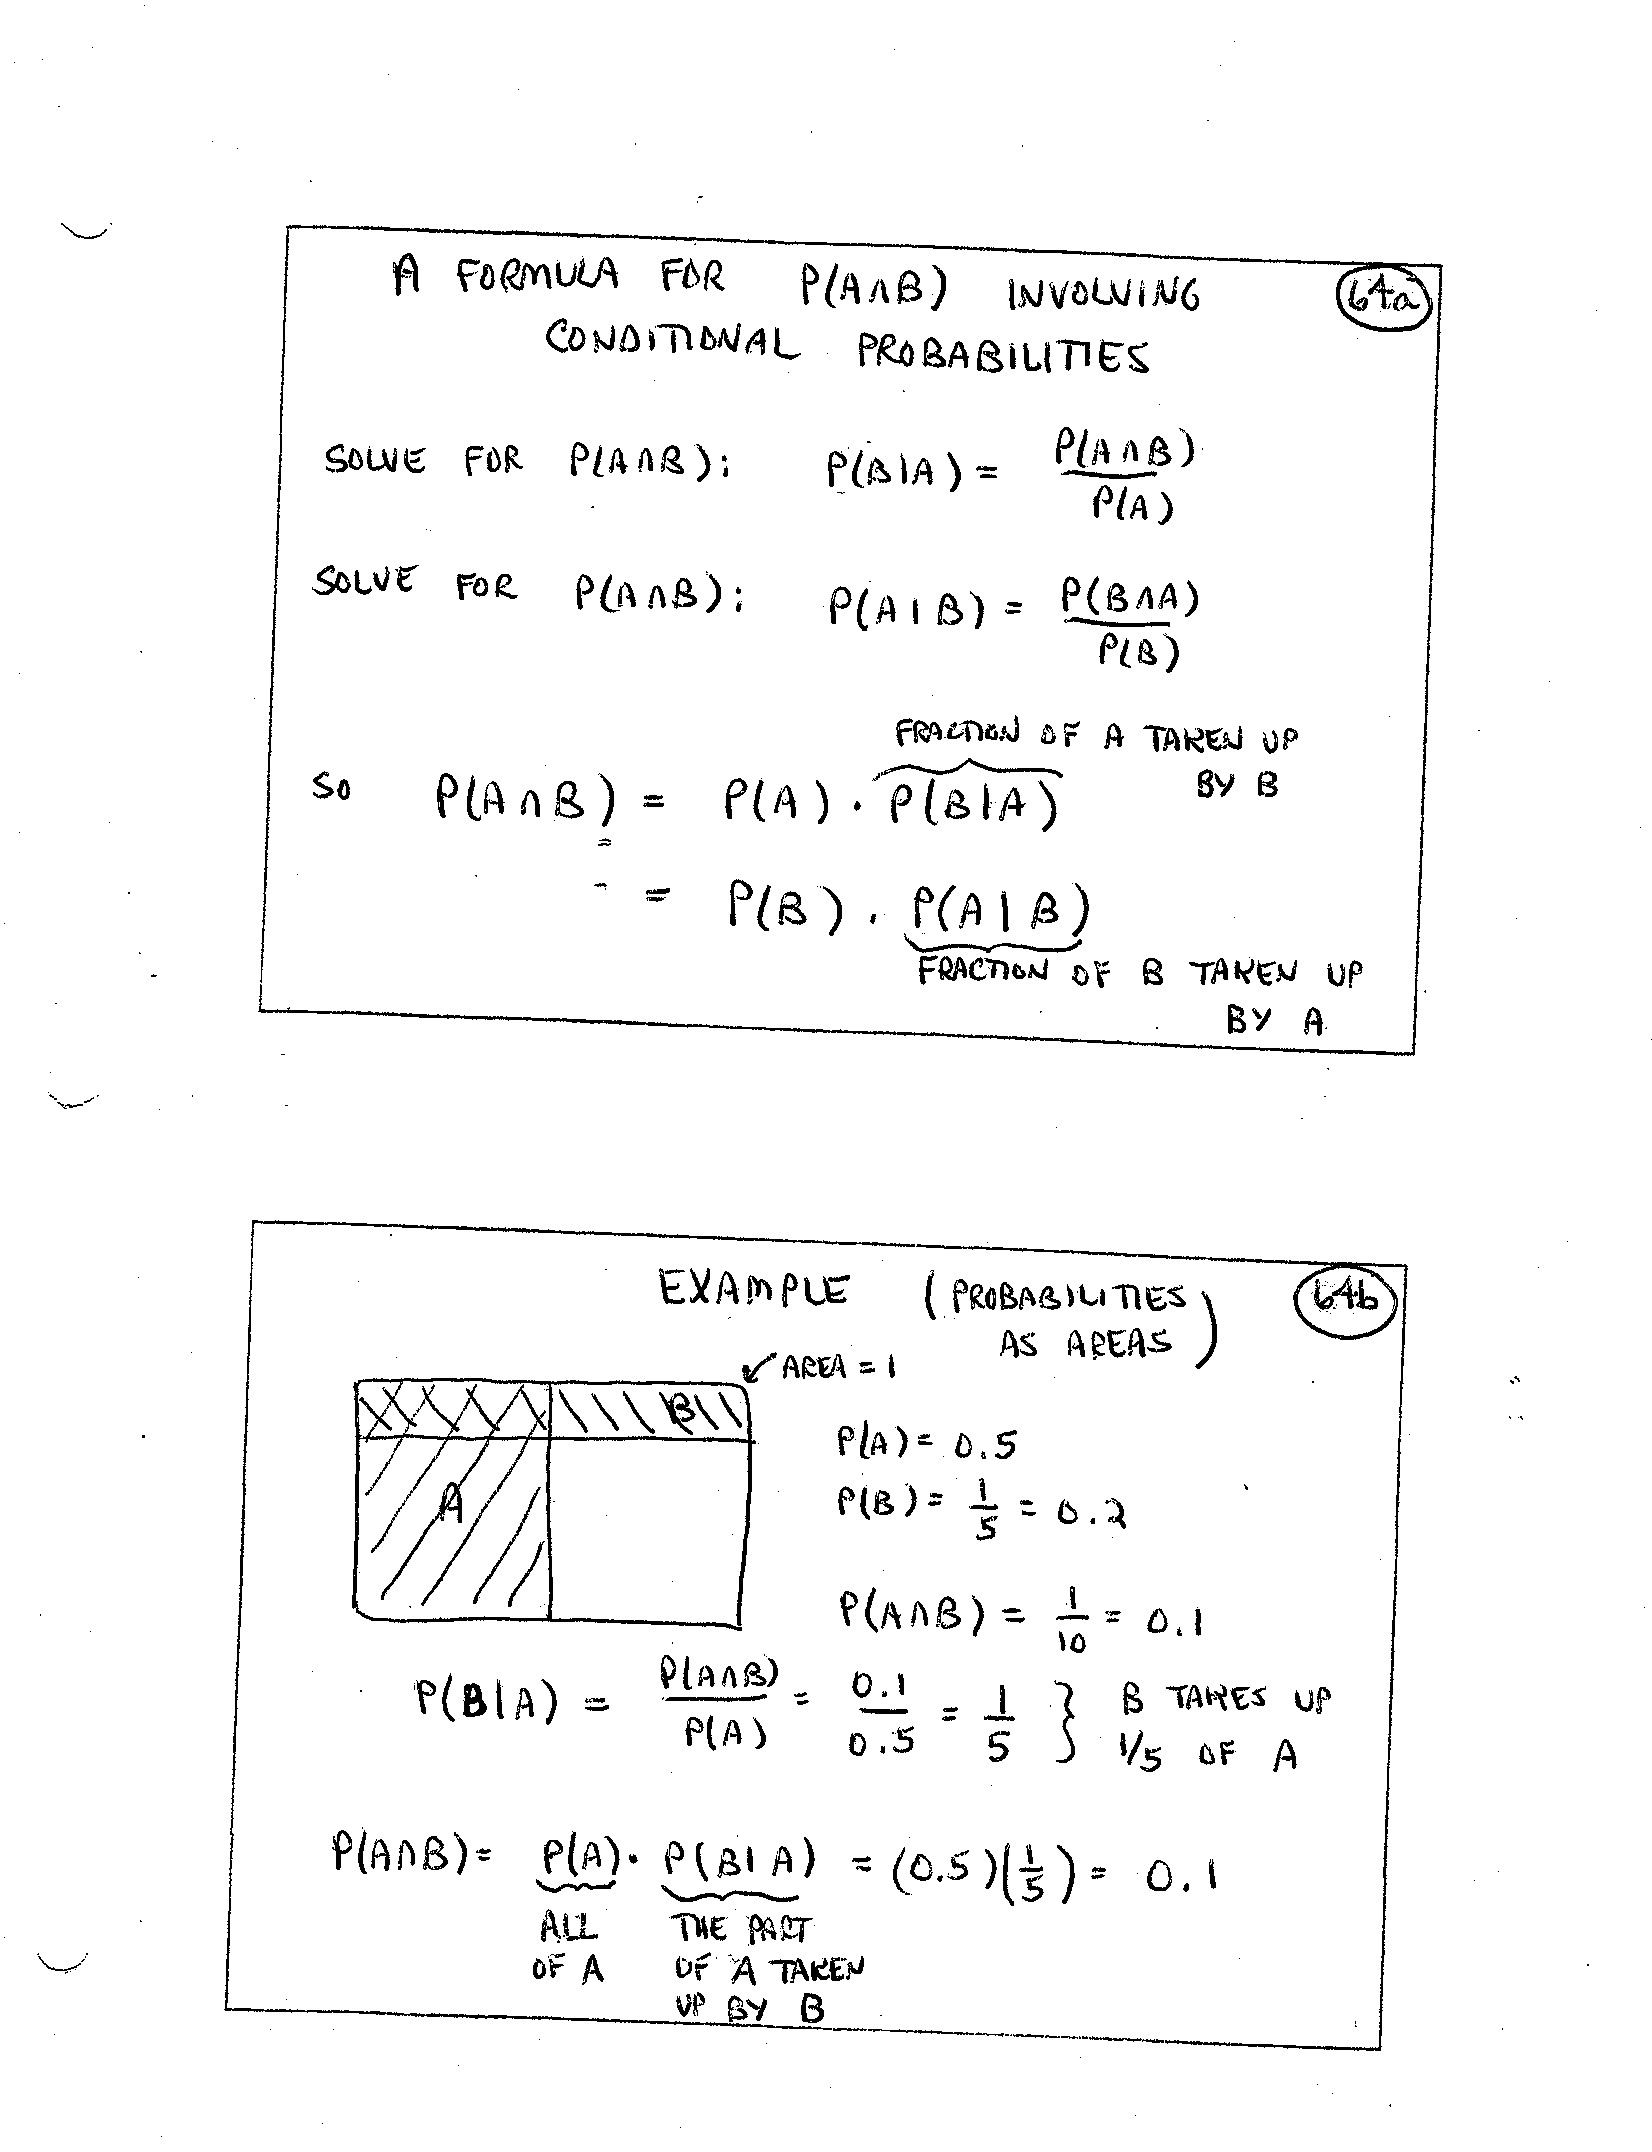 A FORMULA FOR P(A∩B) INVOLVING 64a
CONDITIONAL PROBABILITIES
SOLVE FOR P(A∩B): P(B|A) = P(A∩B) / P(A)
SOLVE FOR P(A∩B): P(A|B) = P(B∩A) / P(B)
FRACTION OF A TAKEN UP
BY B
SO P(A∩B) = P(A) · P(B|A)
= P(B) · P(A|B)
FRACTION OF B TAKEN UP
BY A
EXAMPLE (PROBABILITIES 64b
AS AREAS)
AREA = 1
B
A
P(A) = 0.5
P(B) = 1/5 = 0.2
P(A∩B) = 1/10 = 0.1
P(B|A) = P(A∩B) / P(A) = 0.1 / 0.5 = 1/5 } B TAKES UP
1/5 OF A
P(A∩B) = P(A) · P(B|A) = (0.5)(1/5) = 0.1
ALL THE PART
OF A OF A TAKEN
UP BY B